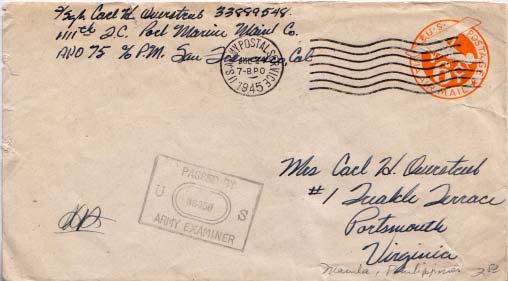 T/Sgt Carl H Overstreet 33889548.
T.C. Port Marine Maint Co.
APO 75 % P.M. San Francisco, Cal
U.S. ARMY POSTAL SERVICE
7-BPO
1945
U.S. POSTAGE
AIR MAIL
PASSED BY
U S
ARMY EXAMINER
Mrs Carl H Overstreet
#1 Terrace
Portsmouth
Virginia
Manila, Philippines